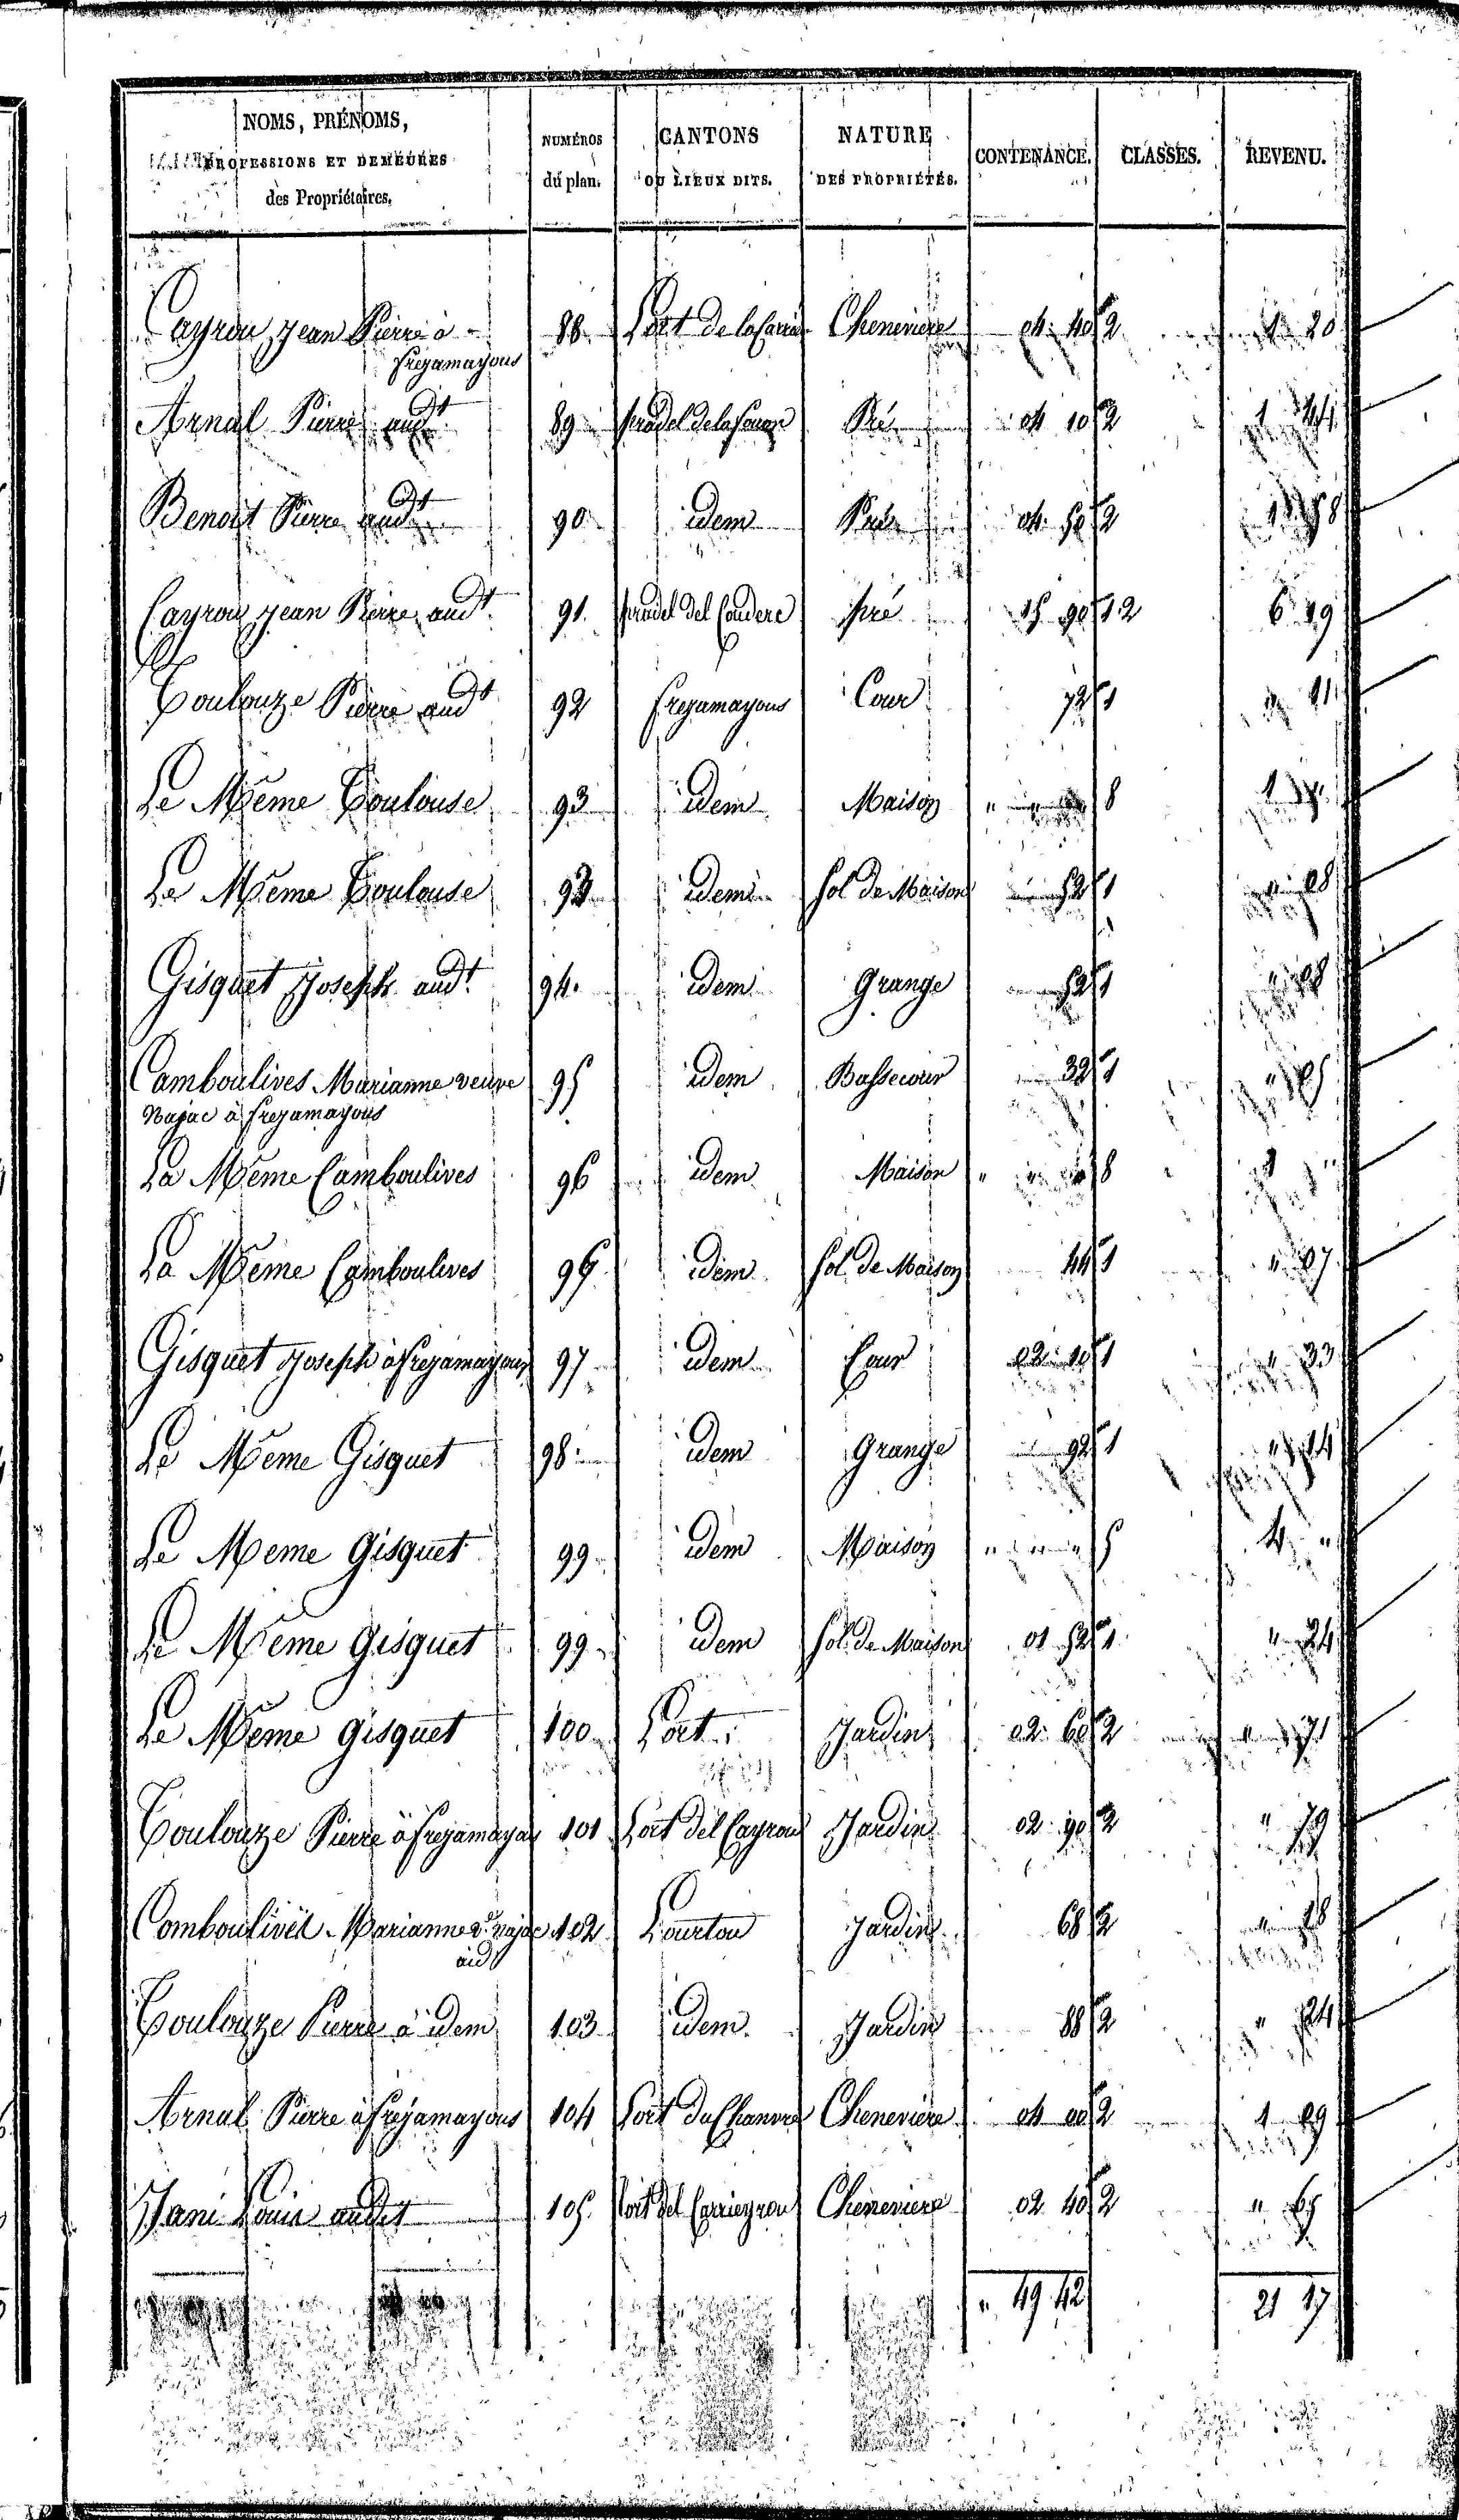 NOMS, PRÉNOMS, PROFESSIONS ET DEMEURES des Propriétaires. NUMÉROS du plan. CANTONS OU LIEUX DITS. NATURE DES PROPRIÉTÉS. CONTENANCE. CLASSES. REVENU.
Cayrou Jean Pierre à Frejamayous 88 Chenevière 04 40 2 20
Arnal Pierre aud.t 89 Pré 04 10 2 1
Benoit Pierre aud.t 90 idem Pré 04 2 1
Cayrou Jean Pierre aud.t 91 Pradel del Couderc Pré 15 90 1.2 6 49
Toulouze Pierre aud.t 92 Frejamayous Cour 72 1 " 11
Le Même Toulouse 93 idem Maison " 8
Le Même Toulouse 93 idem Sol de Maison 52 1 " 08
Gisquet Joseph aud.t 94 idem Grange 52 1 " 08
Camboulives Marianne veuve Najac à Frejamayous 95 idem Bassecour 32 1 " 05
La Même Camboulives 96 idem Maison " 8
La Même Camboulives 96 idem Sol de Maison 44 1 " 07
Gisquet Joseph à Frejamayous 97 idem Cour 02 10 1 " 33
Le Même Gisquet 98 idem Grange 92 1 " 14
Le Meme Gisquet 99 idem Maison " 5 4 "
Le Même Gisquet 99 idem Sol de Maison 01 52 1 " 24
Le Même Gisquet 100 Lort Jardin 02 60 2 " 71
Toulouze Pierre à Frejamayous 101 Lort del Cayrou Jardin 02 90 2 " 79
Camboulives Marianne v.e Najac aud 102 Lourtou Jardin 68 2 " 18
Toulouze Pierre à idem 103 idem Jardin 88 2 " 24
Arnal Pierre à Frejamayous 104 Chenevière 04 00 2 1 09
Louis audit 105 Chenevière 02 40 2 " 65
" 49 42 21 17